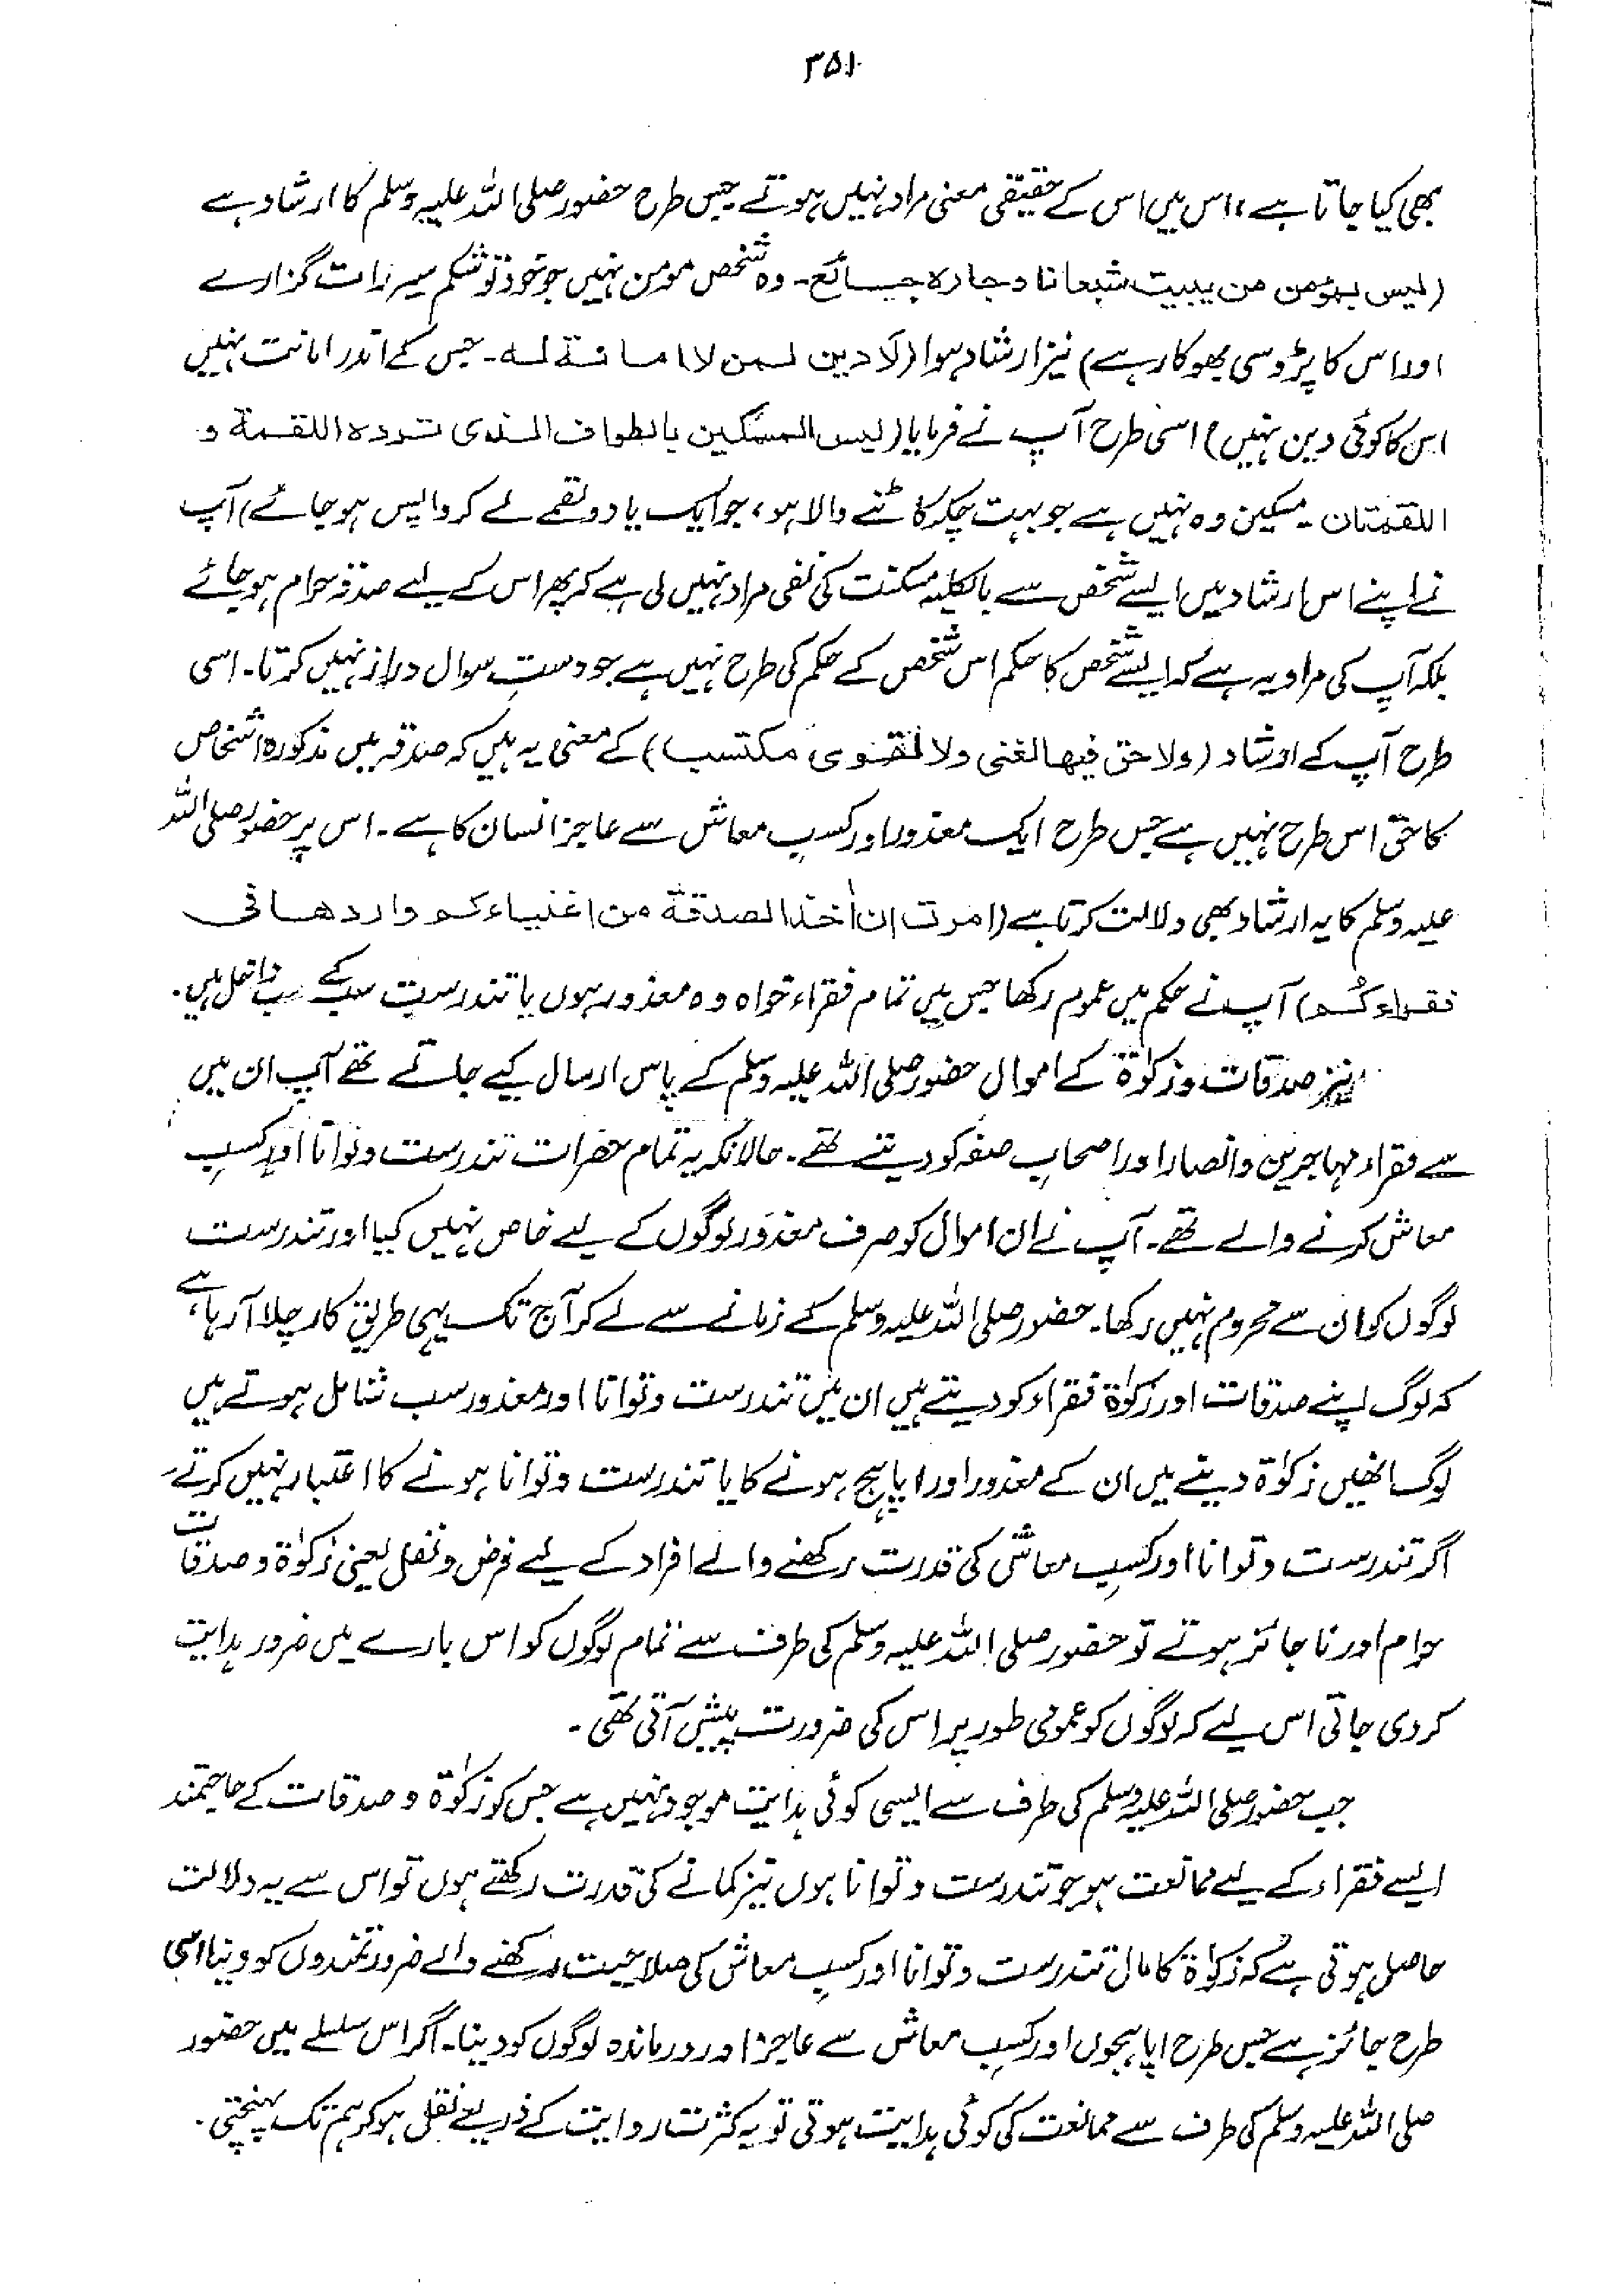 ۳۵۱
بھی کیا جاتا ہے، اس میں اس کے حقیقی معنی مراد نہیں ہوتے جس طرح حضور صلی اللہ علیہ وسلم کا ارشاد ہے
(لیس بمؤمن من یبیت شبعانا وجارہ جائع۔ وہ شخص مومن نہیں جو خود تو شکم سیر رات گزارے
اور اس کا پڑوسی بھوکا رہے) نیز ارشاد ہوا (لا دین لمن لا امانۃ لہ۔ جس کے اندر امانت نہیں
اس کا کوئی دین نہیں) اسی طرح آپ نے فرمایا (لیس المسکین بالطواف الذی تردہ اللقمۃ و
اللقمتان۔ مسکین وہ نہیں ہے جو بہت چکر کاٹنے والا ہو، جو ایک یا دو لقمے لے کر واپس ہو جائے) آپ
نے اپنے اس ارشاد میں ایسے شخص سے بالکلیہ مسکنت کی نفی مراد نہیں لی ہے کہ پھر اس کے لیے صدقہ حرام ہو جائے
بلکہ آپ کی مراد یہ ہے کہ ایسے شخص کا حکم اس شخص کے حکم کی طرح نہیں ہے جو دستِ سوال دراز نہیں کرتا۔ اسی
طرح آپ کے ارشاد (ولا حق فیھا لغنی ولا لقوی مکتسب) کے معنی یہ ہیں کہ صدقہ میں مذکورہ اشخاص
کا حق اس طرح نہیں ہے جس طرح ایک معذور اور کسبِ معاش سے عاجز انسان کا ہے۔ اس پر حضور صلی اللہ
علیہ وسلم کا یہ ارشاد بھی دلالت کرتا ہے (امرت ان اٰخذ الصدقۃ من اغنیاءکم واردھا فی
فقراءکم) آپ نے حکم میں عموم رکھا جس میں تمام فقراء خواہ وہ معذور ہوں یا تندرست سب کے سب داخل ہیں۔
نیز صدقات و زکوٰۃ کے اموال حضور صلی اللہ علیہ وسلم کے پاس ارسال کیے جاتے تھے آپ ان میں
سے فقراء مہاجرین و انصار اور اصحابِ صفہ کو دیتے تھے۔ حالانکہ یہ تمام حضرات تندرست و توانا اور کسبِ
معاش کرنے والے تھے۔ آپ نے ان اموال کو صرف معذور لوگوں کے لیے خاص نہیں کیا اور تندرست
لوگوں کو ان سے محروم نہیں رکھا۔ حضور صلی اللہ علیہ وسلم کے زمانے سے لے کر آج تک یہی طریق کار چلا آ رہا ہے،
کہ لوگ اپنے صدقات اور زکوٰۃ فقراء کو دیتے ہیں ان میں تندرست و توانا اور معذور سب شامل ہوتے ہیں
لوگ انھیں زکوٰۃ دیتے میں ان کے معذور اور اپاہج ہونے کا یا تندرست و توانا ہونے کا اعتبار نہیں کرتے،
اگر تندرست و توانا اور کسبِ معاش کی قدرت رکھنے والے افراد کے لیے فرض و نفل یعنی زکوٰۃ و صدقات
حرام اور ناجائز ہوتے تو حضور صلی اللہ علیہ وسلم کی طرف سے تمام لوگوں کو اس بارے میں ضرور ہدایت
کر دی جاتی اس لیے کہ لوگوں کو عمومی طور پر اس کی ضرورت پیش آتی تھی۔
جب حضور صلی اللہ علیہ وسلم کی طرف سے ایسی کوئی ہدایت موجود نہیں ہے جس کو زکوٰۃ و صدقات کے حاجتمند
ایسے فقراء کے لیے ممانعت ہو جو تندرست و توانا ہوں نیز کمانے کی قدرت رکھتے ہوں تو اس سے یہ دلالت
حاصل ہوتی ہے کہ زکوٰۃ کا مال تندرست و توانا اور کسبِ معاش کی صلاحیت رکھنے والے ضرورتمندوں کو دینا اسی
طرح جائز ہے جس طرح اپاہجوں اور کسبِ معاش سے عاجز اور درماندہ لوگوں کو دینا۔ اگر اس سلسلے میں حضور
صلی اللہ علیہ وسلم کی طرف سے ممانعت کی کوئی ہدایت ہوتی تو یہ کثرت روایت کے ذریعے نقل ہو کر ہم تک پہنچتی۔